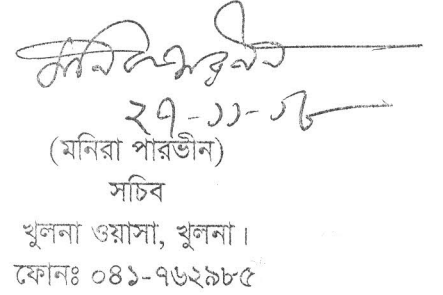 মনিরা পারভীন
২৭-১১-১৮
(মনিরা পারভীন)
সচিব
খুলনা ওয়াসা, খুলনা।
ফোনঃ ০৪১-৭৬২৯৮৫